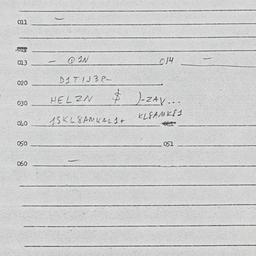 011 –
013 – @ 1N 014 –
020 D1T1J3P–
030 HELZN $ )-ZAV...
040 1SKL8AMKAL1+ KL8AMK81
050 051
060 –